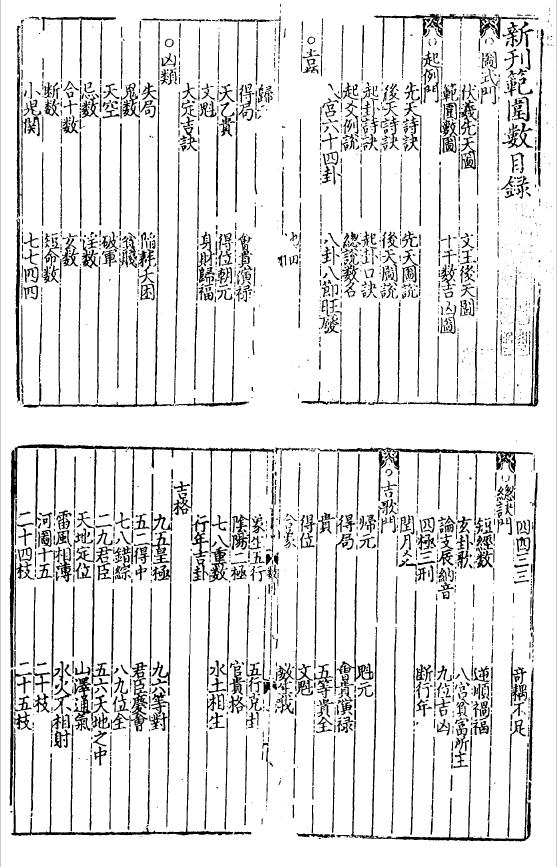 新刊範圍數目録
圖式門
伏羲先天圖 文王後天圖
範圍數圖 十干數吉凶圖
起例門
先天詩訣 先天圖說
後天詩訣 後天圖說
起卦詩訣 起卦口訣
起爻例說 總說數名
八宮六十四卦 八卦八節旺廢
歸
得局 會貴演禄
天乙貴 得位朝元
文魁 身財歸福
大定吉訣
凶類
失局 陷雜大困
鬼數
天空 破軍
忌數 淫數
合十數 玄數
斷數 短命數
小児関 七七四四
四四三三 奇耦不足
總訣門
短經數 逆順禍福
玄卦歌 八宮貧富所主
論支辰納音 九位吉凶
四極三刑 斷行年
閏月之
吉歌門
歸元 魁元
得局 會貴演禄
貴 五等貴全
得位 文魁
合象
象生五行
陰陽二極 官貴格
七八重數 水土相生
行年吉卦
吉格
九五皇極 九六等對
五二得中 君臣慶會
七八錯綜 八九位全
二九君臣 五六天地之中
天地定位 山澤通氣
雷風相薄 水火不相射
河圖十五 二十枝
二十四枝 二十五枝